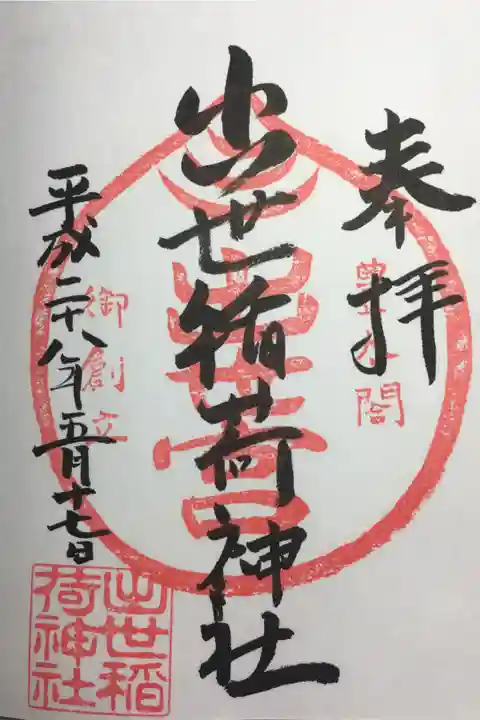 奉拝
豊太閤
出世稲荷神社
出世
御創立
平成二十八年五月十七日
出世稲
荷神社